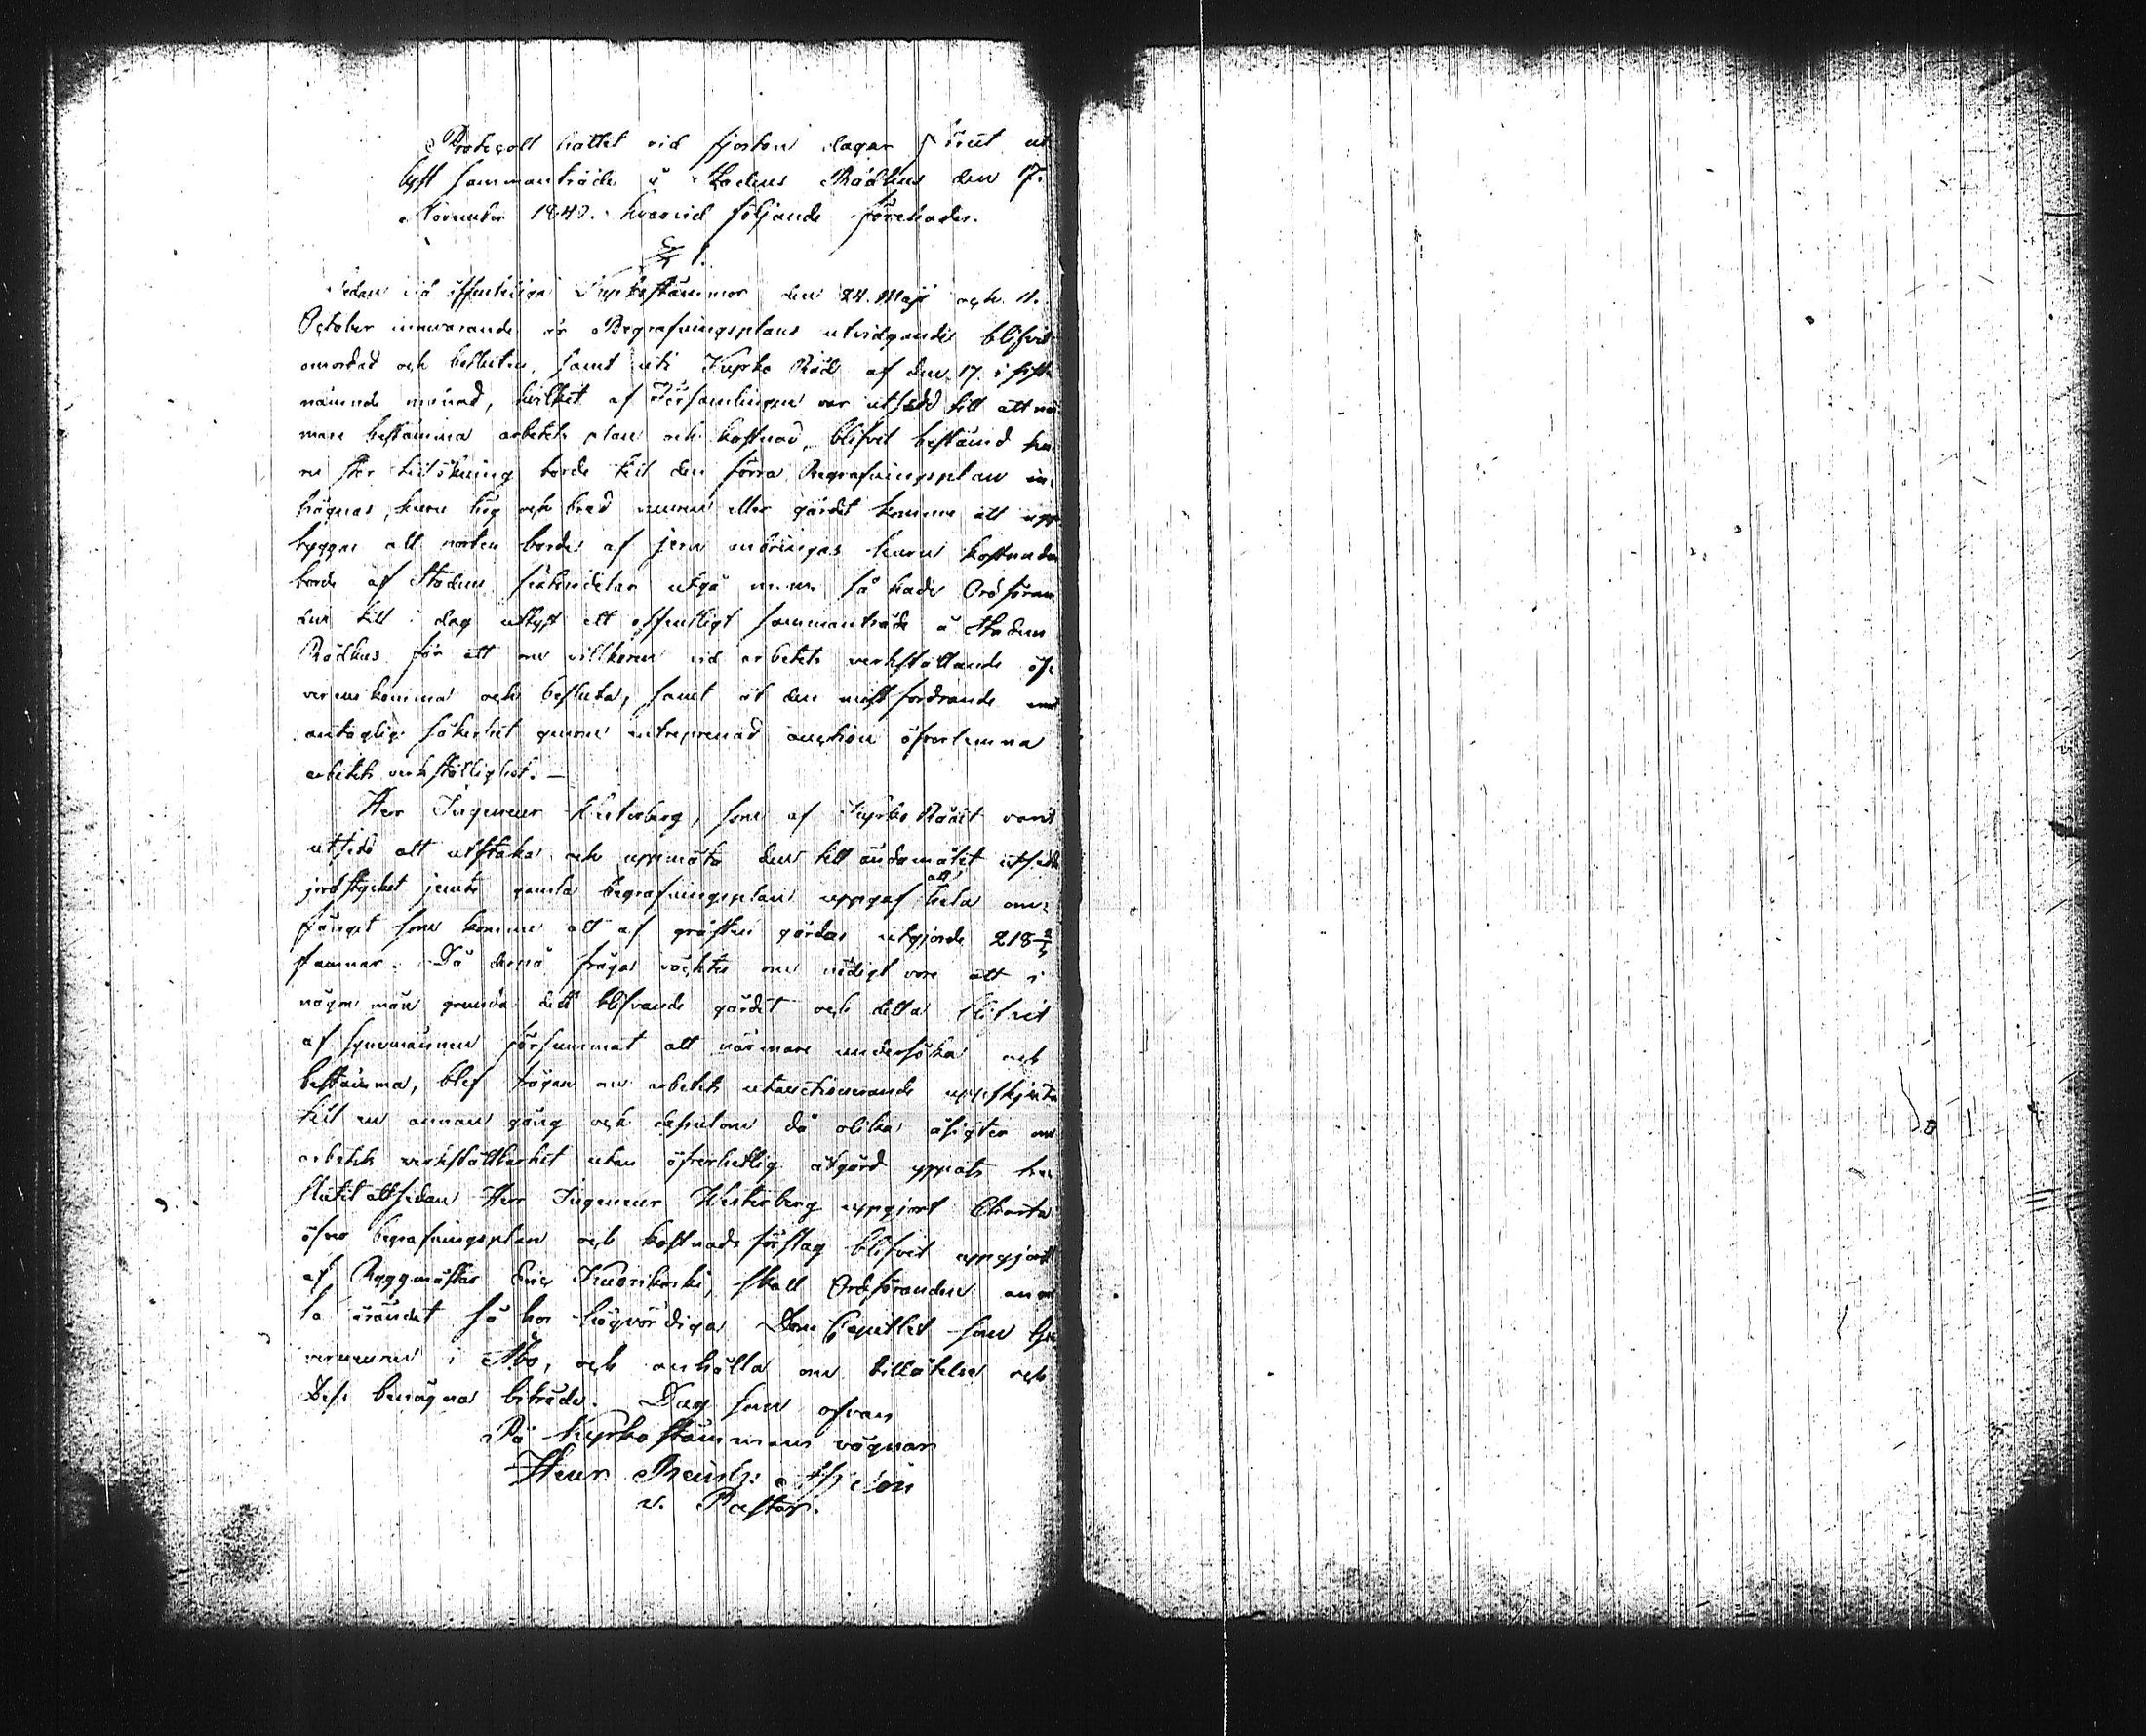 Protocoll hållet vid fjorton dagar förut ut
lyst sammanträde å Stadens Rådhus den 17.
November 1840. hvarvid följande förehades.
§ 1.
Sedan vid offentliga Kyrkostämmor den 24. Maji och 11.
October innevarande år Begrafningsplans utvidgande blifvit
omordad och besluten, samt uti Kyrko Råd af den 17. i sist
nämnde månad, hvilket af Församlingen var utsedd till att när
mare bestämma arbetets plan och kostnad, blifvit bestämd hu
ru stor tillökning borde till den förra Begrafningsplan in
hägnas, huru hög och bred muren eller gärdet komme att upp
byggas att porten borde af jern anbringas huru kostnaden
borde af Stadens utgå m.m. så hade Ordföran
den till i dag utlyst ett offentligt sammanträde å Stadens
Rådhus för att om villkoren vid arbetets verkställande öf
verenskomma och besluta, samt åt den minst fordrande mot
antaglig säkerhet genom entreprenad auction öfverlemna
arbetets verkställighet. –
Herr Ingenieur Westerberg, som af Kyrko Rådet varit
utsedd att utstaka och uppmäta den till ändamålet utsedde
jordstycket jemte gamla begrafningsplan uppgaf att hela om-
fånget som komme att af gärdas utgjorde 218
famnar. Då denna fråga väcktes om nödigt vore att i
någon mån grunda det blifvande gärdet och detta blifvit
af synemännen försummat att närmare undersöka och
bestämma, blef frågan om arbetets utauctionerande uppskjuten
till en annan gång och dessutom då olika åsigter om
arbetets verkställbarhet utan öfverhetlig åtgärd yppats be
slutit att sedan Herr Ingenieur Westerberg uppgjort Charta
öfver begrafningsplan och kostnads förslag blifvit uppgjordt
af Byggmästar Eric skall Ordföranden anmä
la ärendet så hos högvördiga Dom Capitlet som Gu
verneuren i Åbo, och anhålla om tillåtelse och
Dess benägna biträde. Dag som ofvan
På Kyrkostämmans vägnar
Henr.
v. Pastor.